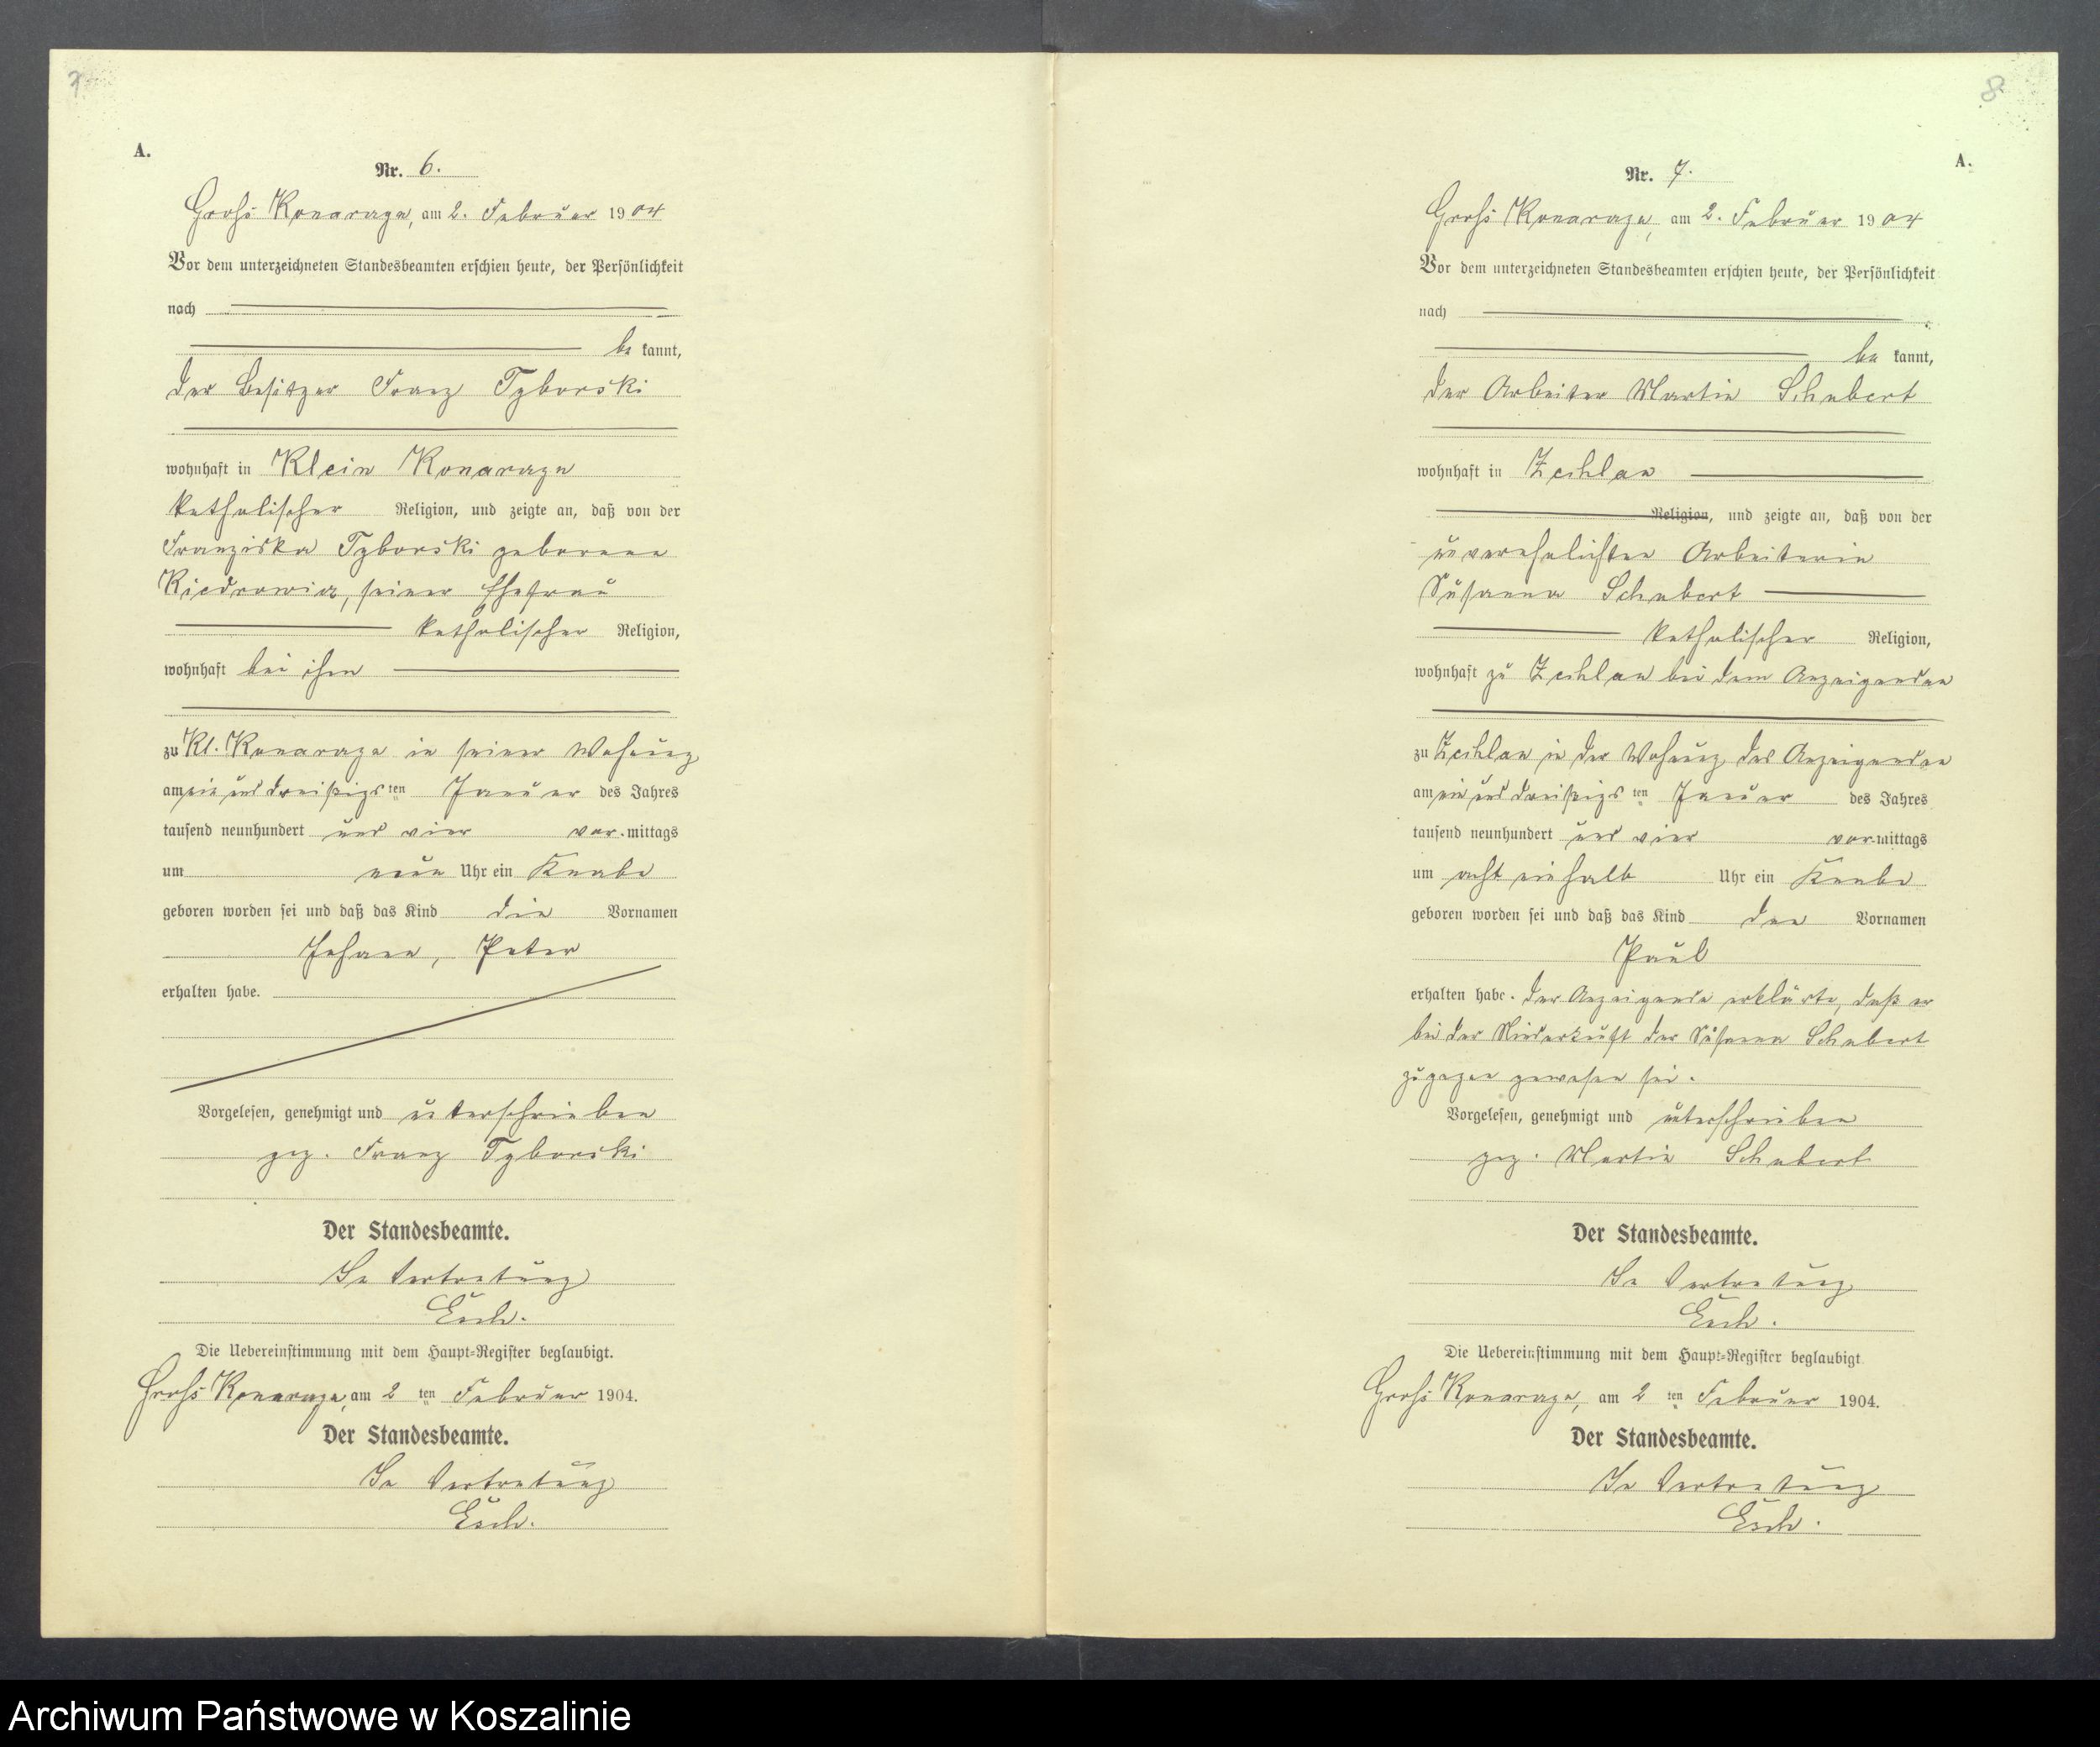 7.
A.
Nr. 6.
Groß Konarzyn, am 2. Februar 1904
Vor dem unterzeichneten Standesbeamten erschien heute, der Persönlichkeit
nach
be kannt,
der Besitzer Franz Tyborski
wohnhaft in Klein Konarzyn
katholischer Religion, und zeigte an, daß von der
Franziska Tyborski geborene
seiner Ehefrau
katholischer Religion,
wohnhaft bei ihm
zu Kl. in seiner Wohnung
am ein und dreißigs ten Januar des Jahres
tausend neunhundert und vier vor mittags
um neun Uhr ein Knabe
geboren worden sei und daß das Kind die Vornamen
Johann, Peter
erhalten habe.
Vorgelesen, genehmigt und unterschrieben
gez. Franz Tyborski
Der Standesbeamte.
In Vertretung
Esch.
Die Uebereinstimmung mit dem Haupt-Register beglaubigt.
Groß am 2 ten Februar 1904.
Der Standesbeamte.
In Vertretung
Esch.
8
A.
Nr. 7.
Groß am 2. Februar 1904
Vor dem unterzeichneten Standesbeamten erschien heute, der Persönlichkeit
nach
be kannt,
der Arbeiter Martin Schubert
wohnhaft in Zechlau
Religion, und zeigte an, daß von der
unverehelichten Arbeiterin
Susanna Schubert
katholischer Religion,
wohnhaft zu Zechlau bei dem Anzeigenden
zu Zechlau in der Wohnung des Anzeigenden
am ein und dreißigs ten Januar des Jahres
tausend neunhundert und vier vor mittags
um acht einhalb Uhr ein Knabe
geboren worden sei und daß das Kind den Vornamen
Paul
erhalten habe. Der Anzeigende erklärte, daß er
bei der Niederkunft der Susanna Schubert
zugegen gewesen sei.
Vorgelesen, genehmigt und unterschrieben
gez. Martin Schubert
Der Standesbeamte.
In Vertretung
Esch.
Die Uebereinstimmung mit dem Haupt-Register beglaubigt
Groß am 2 ten Februar 1904.
Der Standesbeamte.
In Vertretung
Esch.
Archiwum Państwowe w Koszalinie